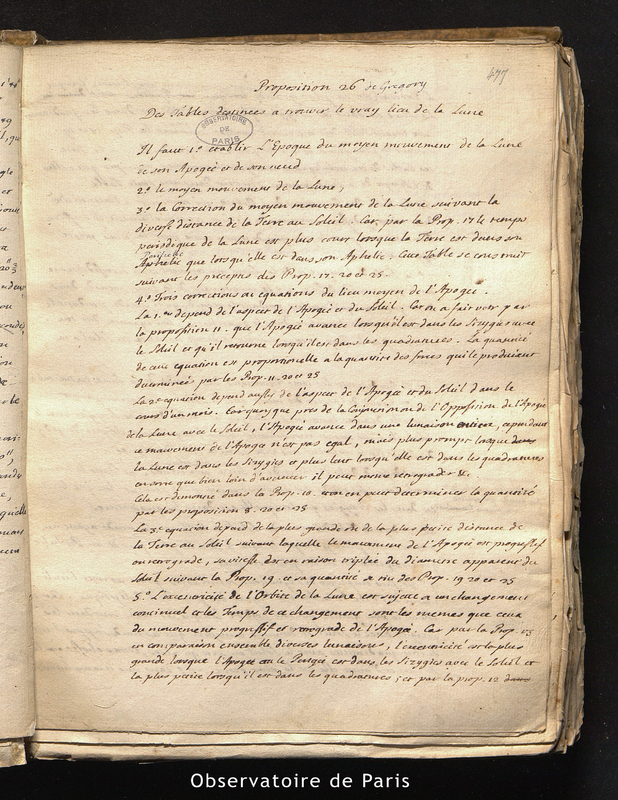 477
Proposition 26 de Gregory
Des Tables destinees a trouver le vray lieu de la Lune
OBSERVATOIRE DE PARIS
Il faut 1.º etablir L'Epoque du moyen mouvement de la Lune
de son Apogée et de son noeud
2.º le moyen mouvement de la Lune,
3.º la Correction du moyen mouvement de la Lune suivant la
diverse distance de la Terre au Soleil. Car par la Prop. 17 le temps
periodique de la Lune est plus court lorsque la Terre est dans son
Perihelie
Aphelie que lorsqu'elle est dans son Aphelie. Cette Table se construit
suivant les preceptes des Prop. 17. 20 et 25.
4.º Trois corrections ou equations du lieu moyen de l'Apogée.
La 1.ere depend de l'aspect de l'Apogée et du Soleil. Car on a fait voir par
la proposition 11. que l'Apogée avance lorsqu'il est dans les Sizygies avec
le Soleil et qu'il retourne lorsqu'il est dans les quadratures. La quantité
de cette equation est proportionelle a la quantité des forces qui le produisent
determinées par les Prop. 11. 20 et 25
La 2.e equation depend aussy de l'aspect de l'Apogée et du Soleil dans le
cours d'un mois. Car quoyque pres de la Conjonction ou de l'Opposition de l'Apogée
de la Lune avec le Soleil, l'Apogée avance dans une lunaison entiere, cependant
ce mouvement de l'Apogée n'est pas egal, mais plus prompt lorsque dans
la Lune est dans les Sizygies et plus lent lorsqu'elle est dans les quadratures
ensorte que bien loin d'avancer il peut meme retrograder
Cela est demontré dans la Prop. 18. et on en peut determiner la quantité
par les proposition 8. 20 et 25
La 3.e equation depend de la plus grande ou de la plus petite distance de
la Terre au Soleil suivant laquelle le mouvement de l'Apogée est progressif
ou retrograde, sa vitesse est en raison triplée du diametre apparent du
Soleil suivant la Prop. 19. et sa quantité se tire des Prop. 19 20 et 25
5.º L'excentricité de l'Orbite de la Lune est sujette a un changement
continuel et les Temps de ce changement sont les memes que ceux
du mouvement progressif et retrograde de l'Apogée. Car par la Prop. 13
en comparaison ensemble diverses lunaisons, l'excentricité est la plus
grande lorsque l'Apogée ou le Perigée est dans les Sizygies avec le Soleil et
la plus petite lorsqu'il est dans les quadratures; et par la prop. 12 dans
Observatoire de Paris